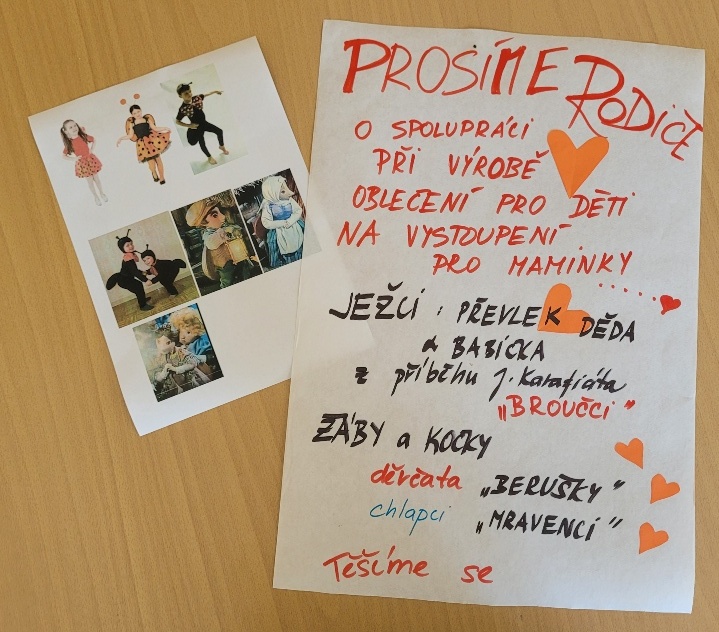 PROSÍME RODIČE
O SPOLUPRÁCI
PŘI VÝROBĚ
OBLEČENÍ PRO DĚTI
NA VYSTOUPENÍ
PRO MAMINKY
JEŽCI : PŘEVLEK DĚDA
a BABIČKA
z příběhu J. Karafiáta
„BROUČCI"
ŽÁBY a KOČKY
děvčata „BERUŠKY"
chlapci „MRAVENCI"
Těšíme se